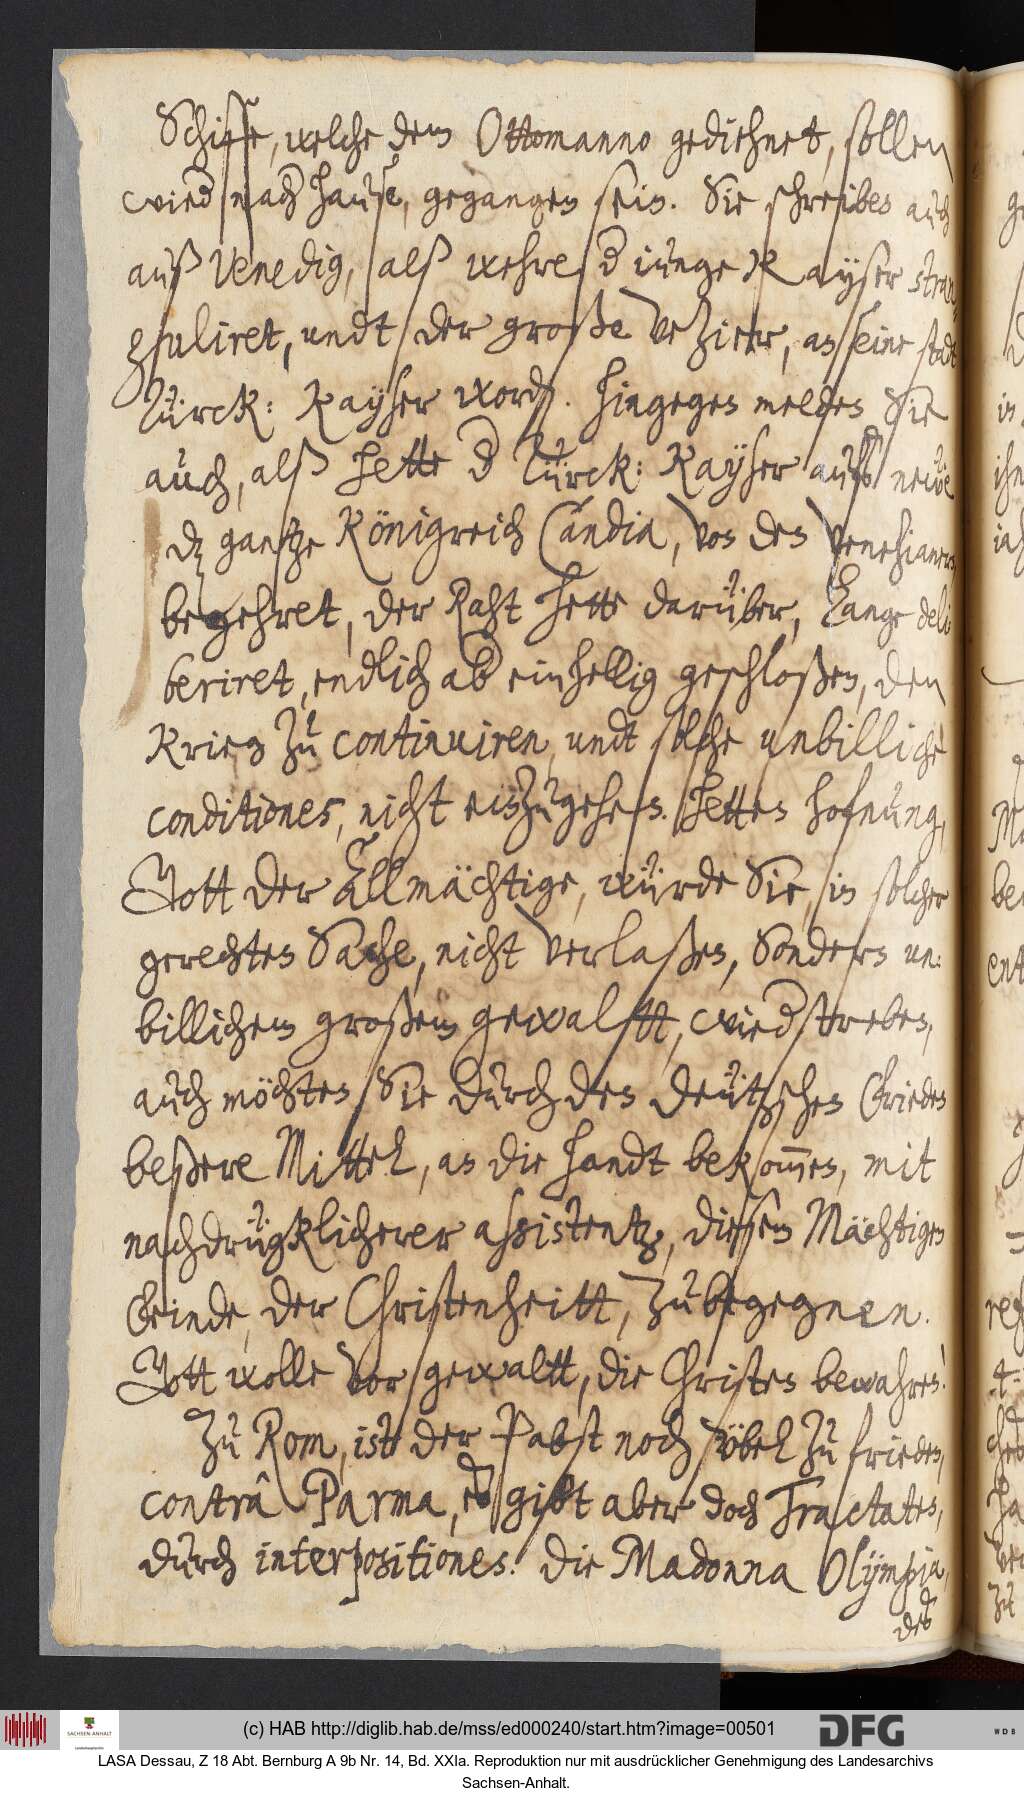 Schiffe, welche dem Ottomanno gediehnet, sollen
wied nach hause, gegangen sein. Sie schreiben auch
auß Venedig, alß wehre d iunge Kayser stran-
guliret, undt der große Vezier, an seine stadt
Türck: Kayser worden. Hingegen melden Sie
auch, alß hette d Türck: Kayser aufs neüe
dz gantze Königreich Candia, von den Venetianern,
begehret, der Raht hette darüber, lange deli
beriret, endlich ab einhellig geschloßen, den
Krieg zu continuiren, undt solche unbilliche
conditiones, nicht einzugehen. Hetten hofnung,
Gott der Allmächtige, würde Sie, in solcher
gerechten Sache, nicht verlaßen, Sondern un:
billichem großem gewaltt, wiedstreben,
auch möchten Sie durch den deützschen Frieden
beßere Mittel, an die handt bekom̅en, mit
nachdrügklicherer assistentz, diesem Mächtigen
Feinde, der Christenheitt, zubegegnen.
Gott wolle vor gewaltt, die Christen bewahren!
Zu Rom, ist der Pabst noch übel zu frieden,
contrâ Parma, es gibt aber doch Tractaten,
durch interpositiones. Die Madonna Olympia,
des
(c) HAB http://diglib.hab.de/mss/ed000240/start.htm?image=00501
SACHSEN-ANHALT
DFG
WDB
LASA Dessau, Z 18 Abt. Bernburg A 9b Nr. 14, Bd. XXIa. Reproduktion nur mit ausdrücklicher Genehmigung des Landesarchivs
Sachsen-Anhalt.